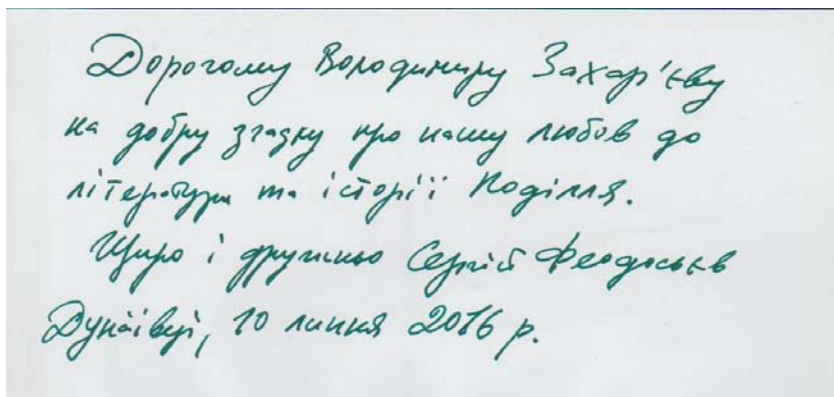 Дорогому Володимиру Захар'єву
на добру згадку про нашу любов до
літератури та історії Поділля.
Щиро і дружньо Сергій Феодосьєв
Дунаївці, 10 липня 2016 р.